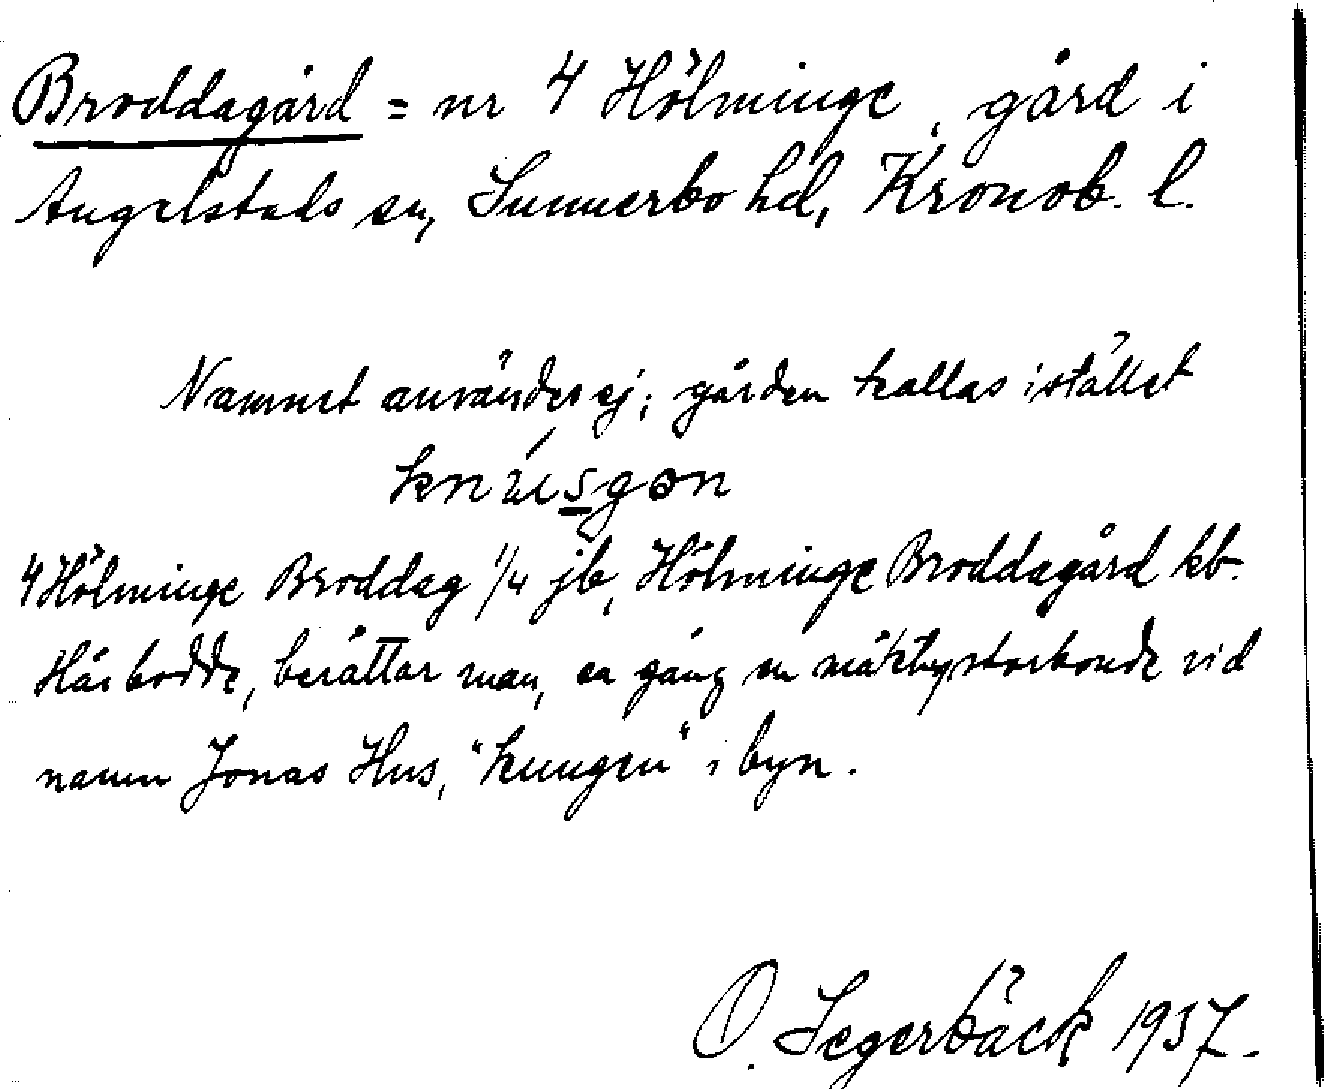 Broddagård = nr 4 Hölminge, gård i
Angelstads sn, Sunnerbo hd, Kronob. l.
Namnet användes ej; gården kallas istället
4 Hölminge Broddag 1/4 jb, Hölminge Broddagård kb.
Här bodde, berättar man, en gång en mäktig storbonde vid
namn Jonas Hus, "kungen" i byn.
O. Segerbäck 1937.